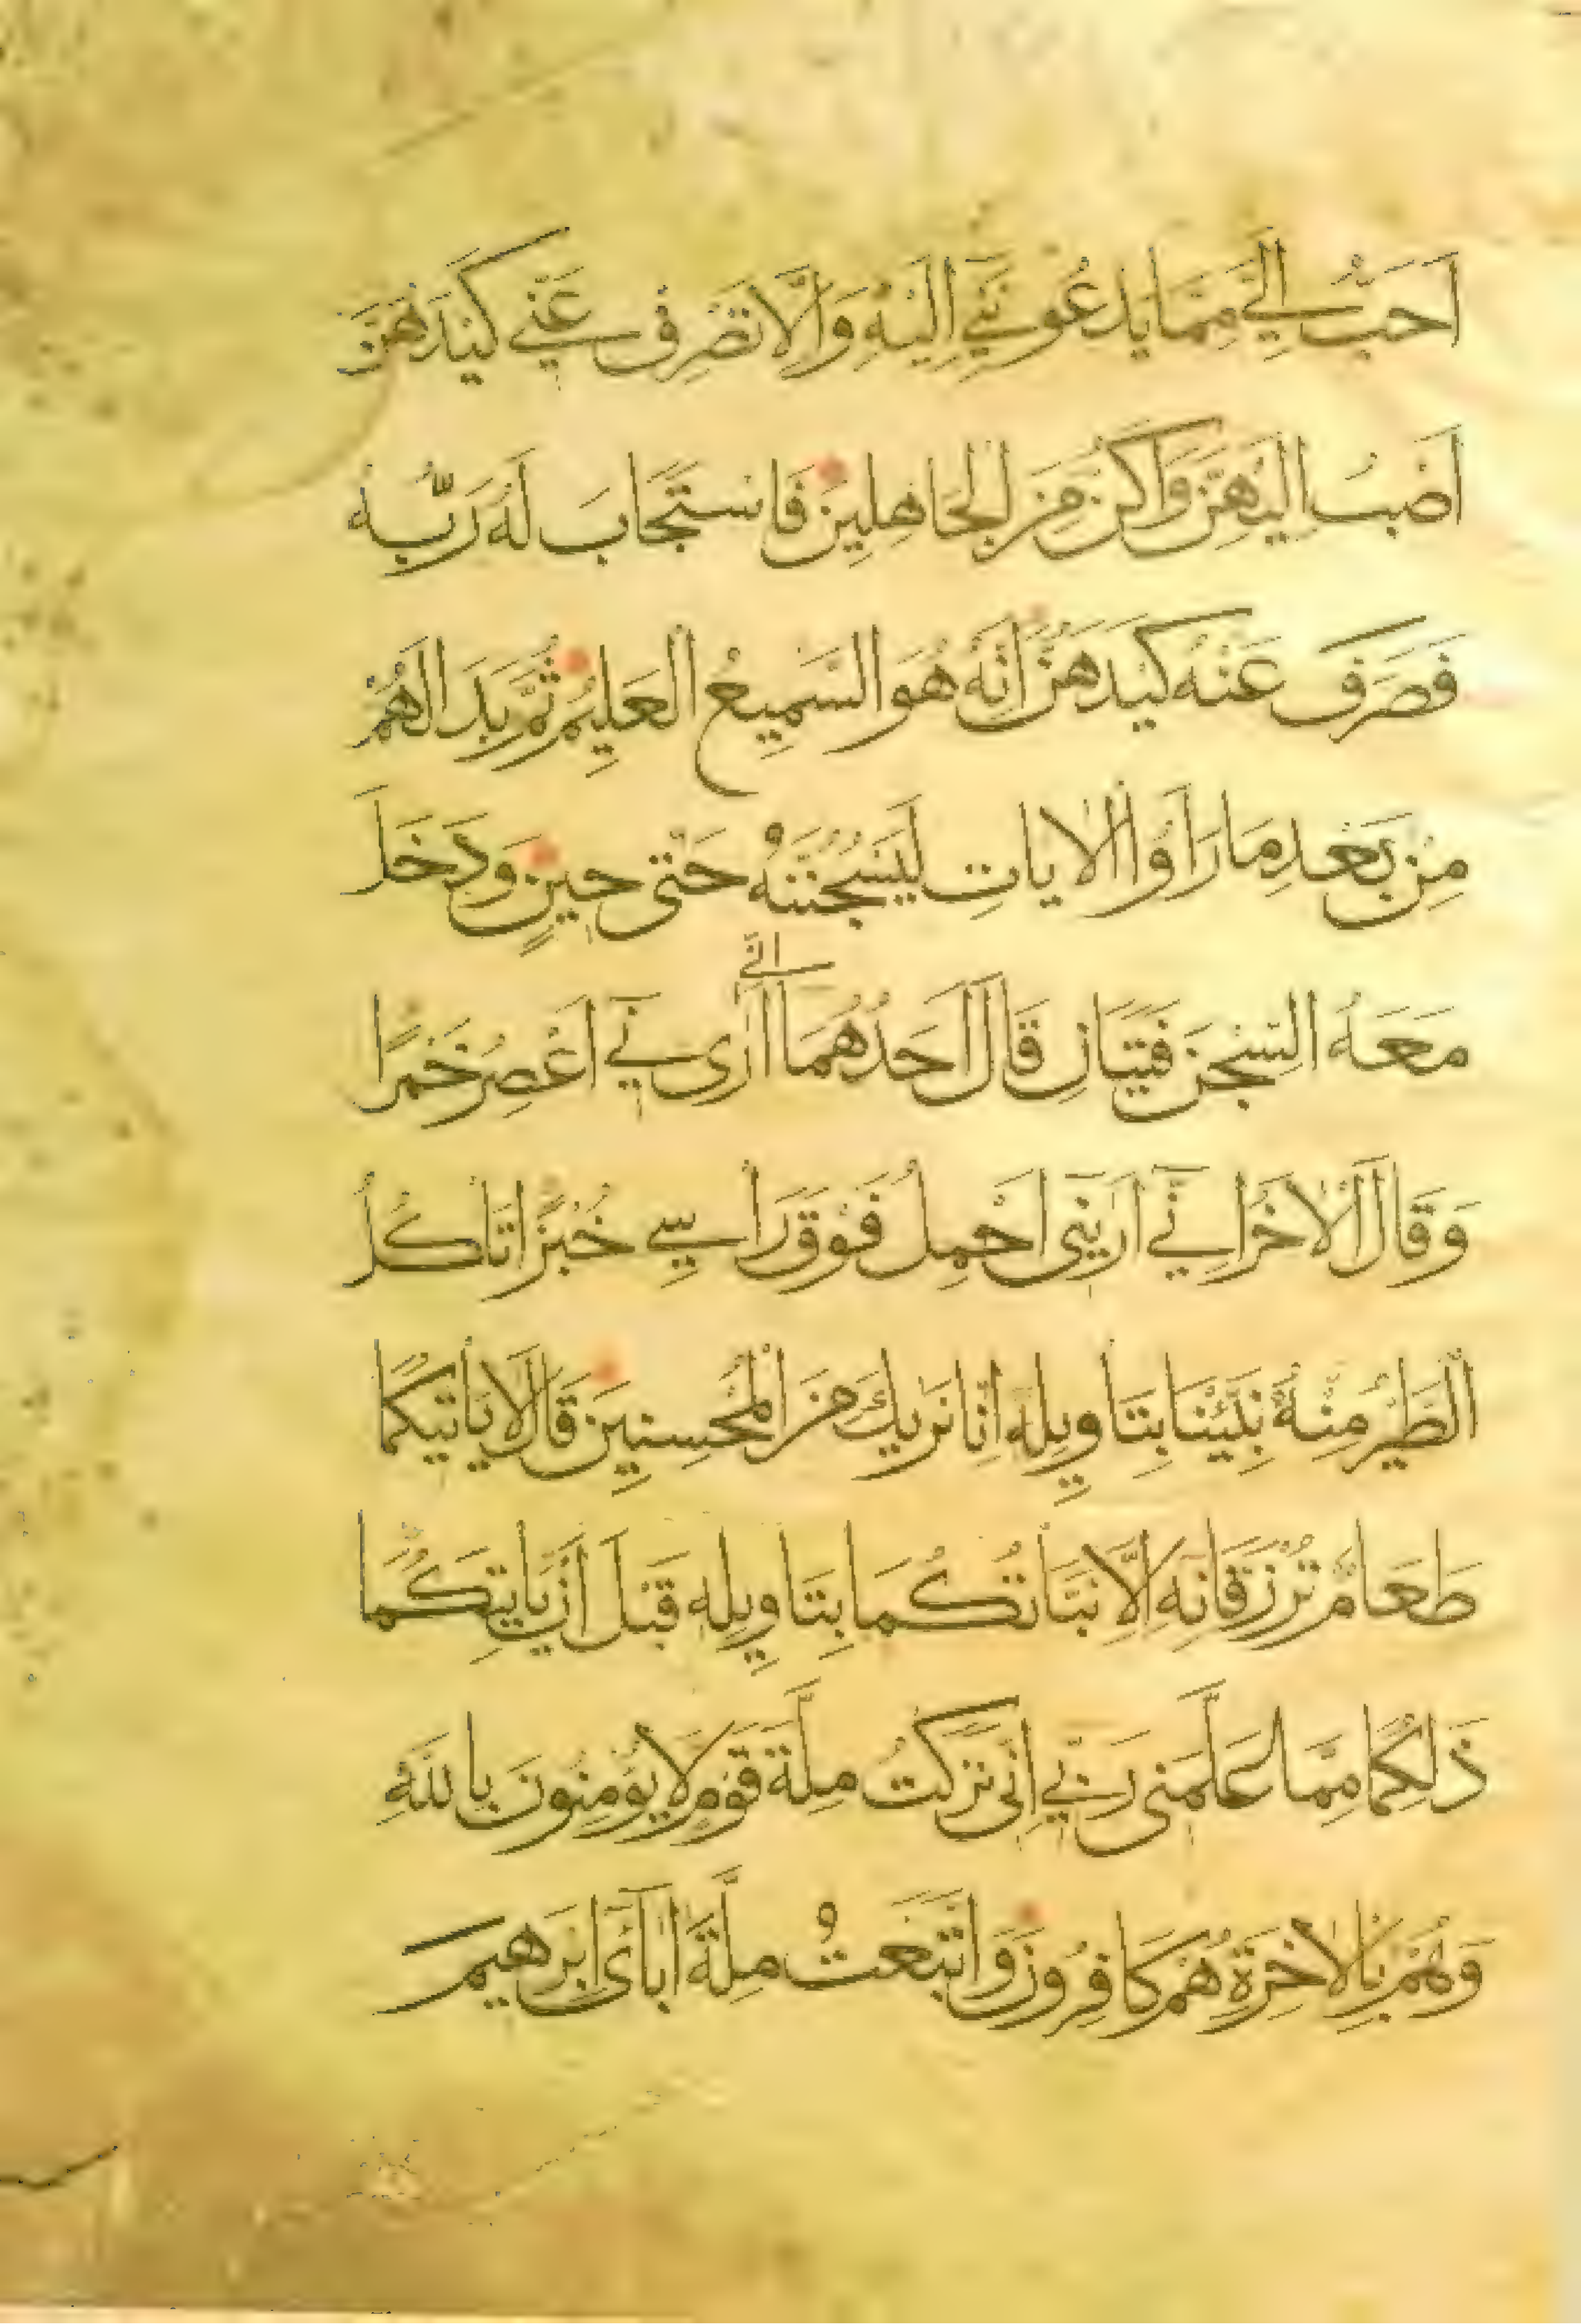 اَحَبُّ اِلَيَّ مِمَّا يَدعُونَنِي اِلَيْهِ وَاِلَّا تَصْرِف عَنِّي كَيْدَهُنَّ
اَصْبُ اِلَيْهِنَّ وَاَكُن مِنَ الْجَاهِلِينَ فَاسْتَجَابَ لَهُ رَبُّهُ
فَصَرَفَ عَنْهُ كَيْدَهُنَّ اِنَّهُ هُوَ السَّمِيعُ الْعَلِيمُ ثُمَّ بَدَا لَهُمْ
مِنْ بَعْدِ مَا رَاَوُا الْاٰيَاتِ لَيَسْجُنُنَّهُ حَتّٰى حِينٍ وَدَخَلَ
اني
مَعَهُ السِّجْنَ فَتَيَانِ قَالَ اَحَدُهُمَا اَرَىنِي اَعْصِرُ خَمْرًا
وَقَالَ الْاٰخَرُ اِنِّي اَرٰينِى اَحْمِلُ فَوْقَ رَاْسِي خُبْزًا تَاْكُلُ
الطَّيْرُ مِنْهُ نَبِّئْنَا بِتَاْوِيلِهِ اِنَّا نَرٰيكَ مِنَ الْمُحْسِنِينَ قَالَ لَا يَاْتِيكُمَا
طَعَامٌ تُرْزَقَانِهِ اِلَّا نَبَّاْتُكُمَا بِتَاْوِيلِهِ قَبْلَ اَنْ يَاْتِيَكُمَا
ذَلِكُمَا مِمَّا عَلَّمَنِى رَبِّي اِنِّى تَرَكْتُ مِلَّةَ قَوْمٍ لَا يُؤْمِنُونَ بِاللّٰهِ
وَهُمْ بِالْاٰخِرَةِ هُمْ كَافِرُونَ وَاتَّبَعْتُ مِلَّةَ اٰبَآئى اِبْرَهِيمَ